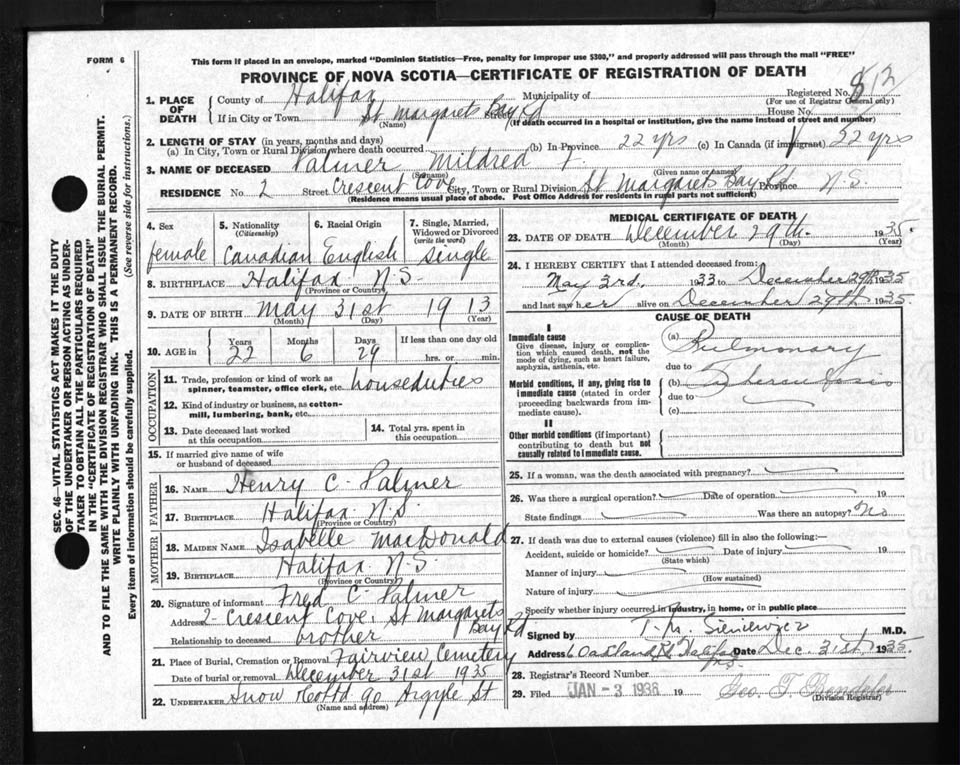 FORM 6
This form if placed in an envelope, marked "Dominion Statistics—Free, penalty for improper use $300," and properly addressed will pass through the mail "FREE"
PROVINCE OF NOVA SCOTIA—CERTIFICATE OF REGISTRATION OF DEATH
SEC. 46—VITAL STATISTICS ACT MAKES IT THE DUTY
OF THE UNDERTAKER OR PERSON ACTING AS UNDER-
TAKER TO OBTAIN ALL THE PARTICULARS REQUIRED
IN THE "CERTIFICATE OF REGISTRATION OF DEATH"
AND TO FILE THE SAME WITH THE DIVISION REGISTRAR WHO SHALL ISSUE THE BURIAL PERMIT.
WRITE PLAINLY WITH UNFADING INK. THIS IS A PERMANENT RECORD.
Every item of information should be carefully supplied. (See reverse side for instructions.)
1. PLACE OF DEATH
County of Halifax Municipality of Registered No. 512
(For use of Registrar General only)
If in City or Town St Margarets Bay Rd House No.
(Name) (If death occurred in a hospital or institution, give the name instead of street and number)
2. LENGTH OF STAY (in years, months and days)
(a) In City, Town or Rural Division where death occurred (b) In Province 22 yrs (c) In Canada (if immigrant) 22 yrs
3. NAME OF DECEASED Palmer Mildred F.
(Surname) (Given name or names)
RESIDENCE No. 2 Street Crescent Cove City, Town or Rural Division St Margarets Bay Rd Province N.S.
(Residence means usual place of abode. Post Office Address for residents in rural parts not sufficient)
4. Sex female
5. Nationality (Citizenship) Canadian
6. Racial Origin English
7. Single, Married, Widowed or Divorced (write the word) Single
8. BIRTHPLACE Halifax N.S.
(Province or Country)
9. DATE OF BIRTH May 31st 1913
(Month) (Day) (Year)
10. AGE in Years 22 Months 6 Days 29 If less than one day old hrs. or min.
OCCUPATION
11. Trade, profession or kind of work as spinner, teamster, office clerk, etc. houseduties
12. Kind of industry or business, as cotton-mill, lumbering, bank, etc.
13. Date deceased last worked at this occupation
14. Total yrs. spent in this occupation
15. If married give name of wife or husband of deceased
FATHER
16. NAME Henry C. Palmer
17. BIRTHPLACE Halifax N.S.
(Province or Country)
MOTHER
18. MAIDEN NAME Isabelle MacDonald
19. BIRTHPLACE Halifax N.S.
(Province or Country)
20. Signature of informant Fred C. Palmer
Address 2 Crescent Cove, St Margarets Bay Rd
Relationship to deceased brother
21. Place of Burial, Cremation or Removal Fairview Cemetery
Date of burial or removal December 31st 1935
22. UNDERTAKER Snow & Co Ltd 90 Argyle St
(Name and address)
MEDICAL CERTIFICATE OF DEATH
23. DATE OF DEATH December 29th 1935.
(Month) (Day) (Year)
24. I HEREBY CERTIFY that I attended deceased from:
May 3rd. 1933 to December 29th 1935
and last saw her alive on December 29th 1935.
CAUSE OF DEATH
I
Immediate cause
Give disease, injury or complication which caused death, not the mode of dying, such as heart failure, asphyxia, asthenia, etc.
(a) Pulmonary
due to
Morbid conditions, if any, giving rise to immediate cause (stated in order proceeding backwards from immediate cause).
(b) Tuberculosis
due to
(c)
II
Other morbid conditions (if important) contributing to death but not causally related to immediate cause.
25. If a woman, was the death associated with pregnancy?
26. Was there a surgical operation? Date of operation 19
State findings Was there an autopsy? No
27. If death was due to external causes (violence) fill in also the following:—
Accident, suicide or homicide? Date of injury 19
(State which)
Manner of injury
(How sustained)
Nature of injury
Specify whether injury occurred in industry, in home, or in public place
Signed by T. M. Sieniewicz M.D.
Address 6 Oakland Rd Halifax N.S. Date Dec. 31st 1935.
28. Registrar's Record Number
29. Filed JAN - 3 1936 19
(Division Registrar)